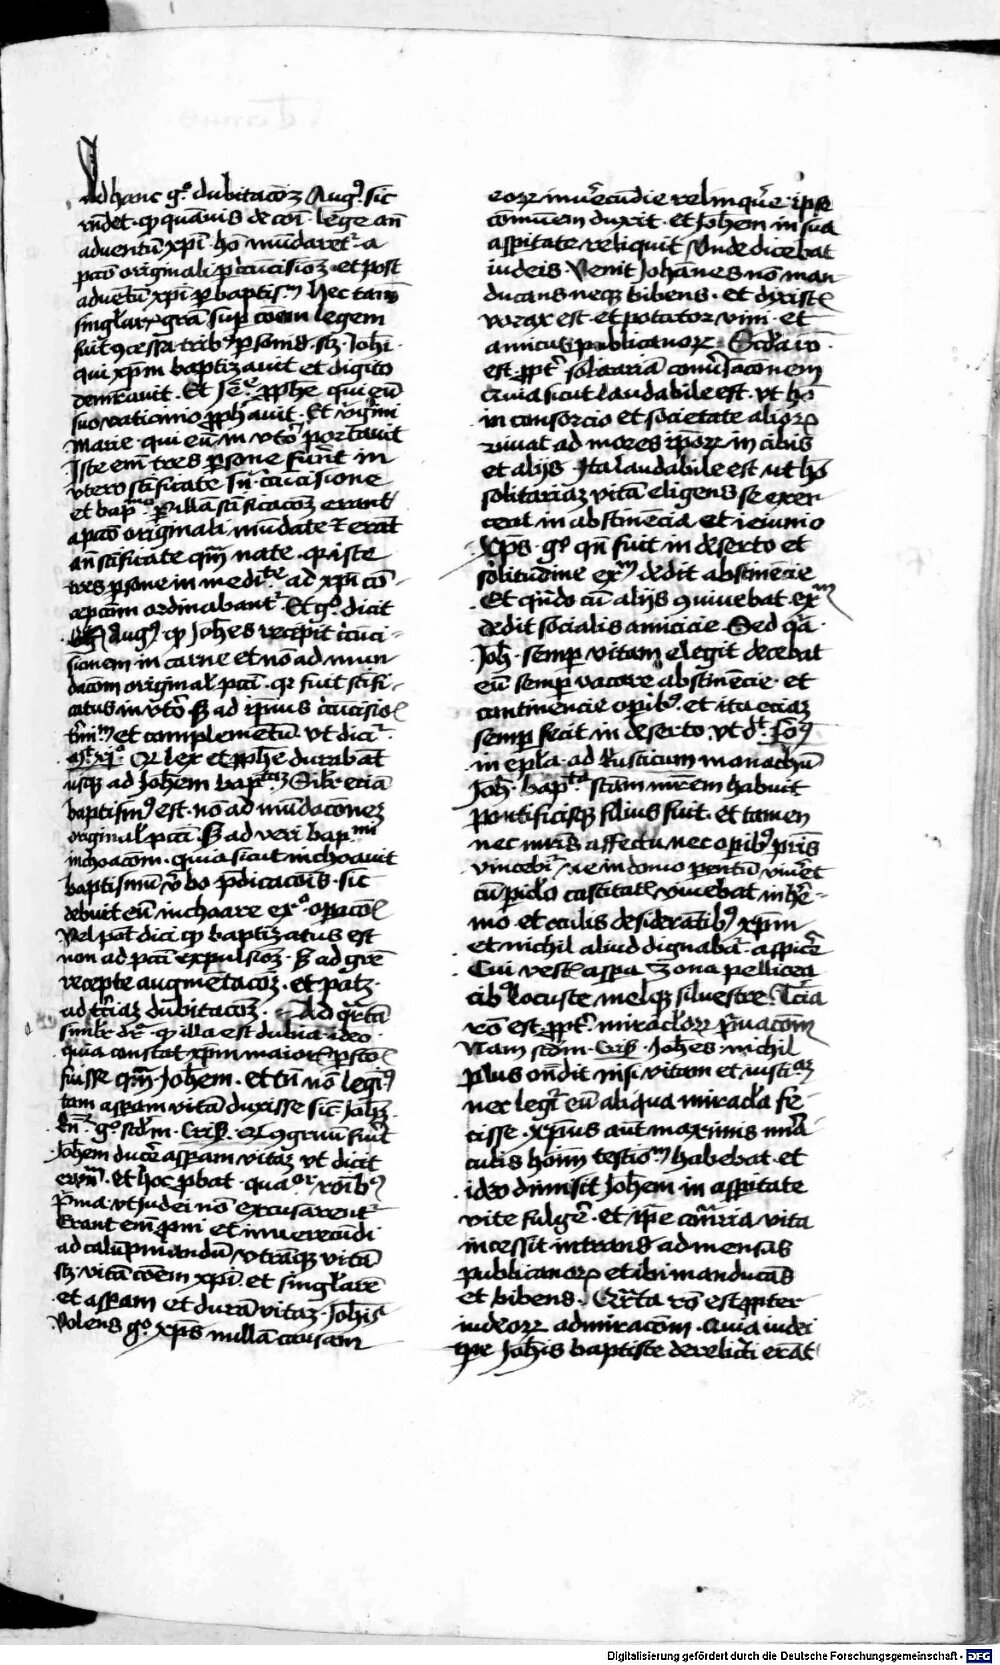 Ad hanc gͦ dubitacōꝫ Augꝰ sic
rn̄det · ꝙ quāuis de cōi lege an̄
aduentū xp̄i hō mūdaretᷣ a
pctō originali ꝑ cͥcūcisionꝫ · et post
aduētū xp̄i ꝑ baptismͫ hec tamē
singlar̄ grā sup̄ cōem legem
fuit ꝯcessa tribꝰ ꝑsonis · scꝫ · Joh̄i ·
qui xp̄m baptizauit et digito
demr̄auit · Et Jeͤ ꝓph̄e qui eū
suo vaticinio ꝓph̄auit · Et v̄gini
Marie · qui eū in vtͦ portauit
Iste em̄ tres ꝑsone fuer̄t in
vtero scīficate sn̄ cͥcūcisione
et bapͫͦ · ꝑ illā scīficacōꝫ erant
a pctō originali mūdate ⁊ erāt
an̄ scīficate qͣm nate · qr iste
tres ꝑsone in medͥte ad xp̄i cō-
cepcōm ordinabantᷣ · Et gͦ dicit
Augꝰ ꝙ Joh̄es recepit cͥcūci-
sionem in carne et nō ad mun
dacōm original̄ pcti · qr fuit scīfi-
catus in vtͦ · sꝫ ad ip̄ius cͥcūcisio
et complementū · vt dicᷣ ·
Qr lex et ꝓph̄e durabāt
usqꝫ ad Joh̄em bapͭᵃꝫ · Silr̄ etiā
baptismꝰ est · nō ad mūdacōneꝫ
original̄ pcti · sꝫ ad veri bapͫⁱ
inchoacōm · quia sicut inchoauit
baptismū v̄bo p̄dicacōis · sic
debuit eū inchoare exͦ opacō
Vel pōt dici ꝙ baptizatus est
non ad pcti expulsionꝫ · sꝫ ad grē
recepte augmētacōꝫ · et patꝫ ·
ad tr̄ciaꝫ dubitacōꝫ · Ad qr̄tā
similr̄ dr̄ · ꝙ illa est dubia · ideo
quia constat xp̄m maiorͥ ꝑfctō
fuisse qͣm Joh̄em · et tn̄ nō legiꝰ
tam aspam vitā duxisse sic Joh̄ꝫ ·
Rn̄ᷣ gͦ scd̄m · Cris̄ · Qr ꝯgruū fuit
Joh̄em ducͤ aspam vitaꝫ vt dicit
et hoc ꝓbat · quaͦʳ rōnibꝰ
Pͥma · vt Judei nō excusarentᷣ
Erant em̄ ꝓni et inuerecūdi
ad calūpniandū vtrāqꝫ vitā
scꝫ · vitā cōem xp̄i · et singlarē
et aspam et durā vitaꝫ · Joh̄is
Volens gͦ xp̄s nullā causam
eorꝝ inuͤcundie relinquͤ · ip̄e
cōmūem duxit · et Joh̄em in sua
aspitate reliquit · Vnde dicebat
iudeis · Venit Johānes nō man-
ducans neqꝫ bibens · et dixist
vorax est · et potator vini · et
amicus publicanorꝝ · Scd̄a rō
est ꝓptͥ solitariā comūͥcaconem
Quia sicut laudabile est · vt hō
in consorcio et societate aliorꝝ
viuat ad mores ip̄orꝝ in cibis
et alijs · Ita laudabile est ut hō
solitariaꝫ vitā eligens se exer
ceat in abstinēcia et ieiunio
Xp̄s · gͦ qn̄ fuit in deserto et
solitudine exͫ dedit abstinēcie
Et qn̄do cū alijs ꝯuiuebat · exͫ
dedit socialis amicicie · Sed qͥa ·
Joh̄ · semꝑ vitam elegit decebat
eū semꝑ vacare abstinēcie · et
continēcie opibꝰ · et ita etiaꝫ
semꝑ fecit in deserto · vt dͭ
in epl̄a · ad Rusticum monachū
Joh̄ · bapͭᵃ sctam mr̄em habuit
pontificisqꝫ filius fuit · et tamen
nec mr̄is affectu nec opibꝰ pr̄is
vincebᷣ · ne in domo parentū viuͤet
cū ꝑiclo castitatͥ viuebat in hͤe-
mo · et oculis desiderātibꝰ xp̄m
et nichil aliud dignabāᷣ aspicͤ
Cui vestͥ aspa · Zona pellicea
cibꝰ locuste melqꝫ siluestre · Tͨia
rō est ꝓptͥ miraclorꝝ pͥuacōm
Nam scd̄m · Cris̄ · Joh̄es · nichil
plus on̄dit nisi vitam et iustͥᵃꝫ
nec legiᷣ eū aliqua miracl̄a fe
cisse · Xp̄us aūt maximis mͥa
culis hoīm testioͫ habebat · et
ideo dimisit Joh̄em in aspitate
vite fulgͤ · et ip̄e coͫria vita
incessit · intrans ad mensas
publicanorꝝ et ibi manducās
et bibens · Qr̄ta rō est ꝓpter
iudeorꝝ admiracōm · Quia iudei
Joh̄is baptiste derelicti erāt